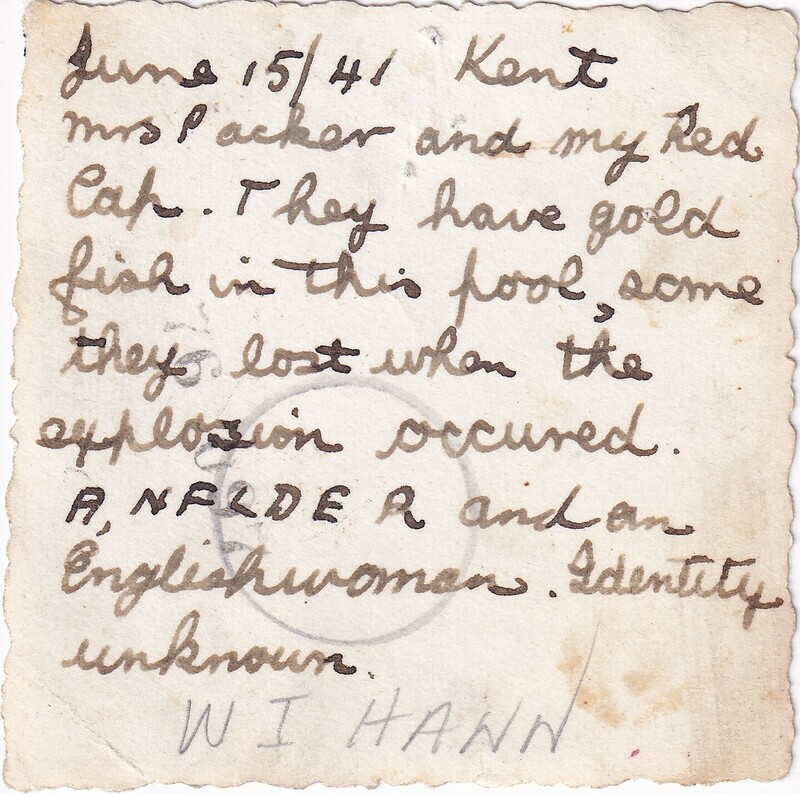 June 15/41 Kent
mrs Packer and my Red
Cap. They have gold
fish in this pool, some
they lost when the
explosion occured.
A, NFLDER and an
Englishwoman. Identity
unknown.
W I HANN